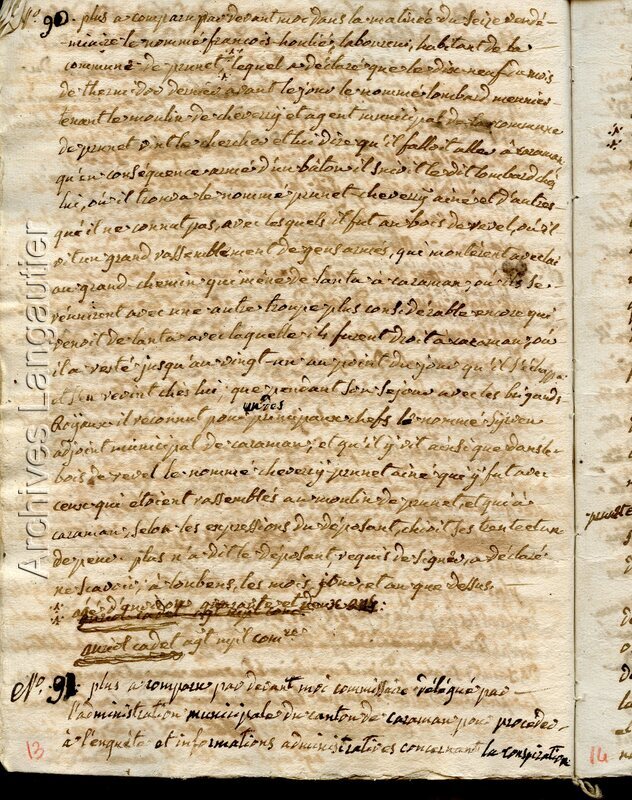 N.o 90. plus a comparu par devant moi dans la matinée du seize vendé-
-miaire le nommé françois houlié, laboureur, habitant de la
commune de prunet, lequel a déclaré que le dix neuf du mois
de thermidor dernier avant le jour le nommé lombard meunier
tenant le moulin de cheverry et agent municipal de la commune
de prunet vint le chercher et lui dire qu'il falloit aller à caraman,
qu'en conséquence armé d'un bâton il suivit le dit lombard chés
lui, où il trouva le nommé prunet cheverry ainé et d'autres
qu'il ne connut pas, avec lesquels il fut au bois de revel, où il
vit un grand rassemblement de gens armés, qui montèrent avec lui
au grand chemin qui mène de lanta à caraman, où ils se
reunirent avec une autre troupe plus considérable encore qui
venoit de lanta avec laquelle ils furent droit à caraman, où
il a resté jusqu'au vingt-un au point du jour qu'il s'échappa
et s'en revint chés lui; que pendant son sejour avec les brigands
Royaux il reconnut pour un des principaux chefs le nommé
adjoint municipal de caraman; et qu'il y vit ainsi que dans le
bois de revel le nommé cheverry prunet ainé qui y fut avec
ceux qui étoient rassemblés au moulin de prunet, et qui à
caraman, selon les expressions du déposant,
de peur. plus n'a dit le déposant, requis de signer, a déclaré
ne scavoir; à loubens, les mois, jour, et an que dessus.
agé d'environ quarante et
cadet agt mpl comre
N.o 91. plus a comparu par devant moi commissaire délégué par
l'administration municipale du canton de caraman pour procéder
à l'enquéte et informations administratives concernant la conspiration
13
14
Archives Langautier